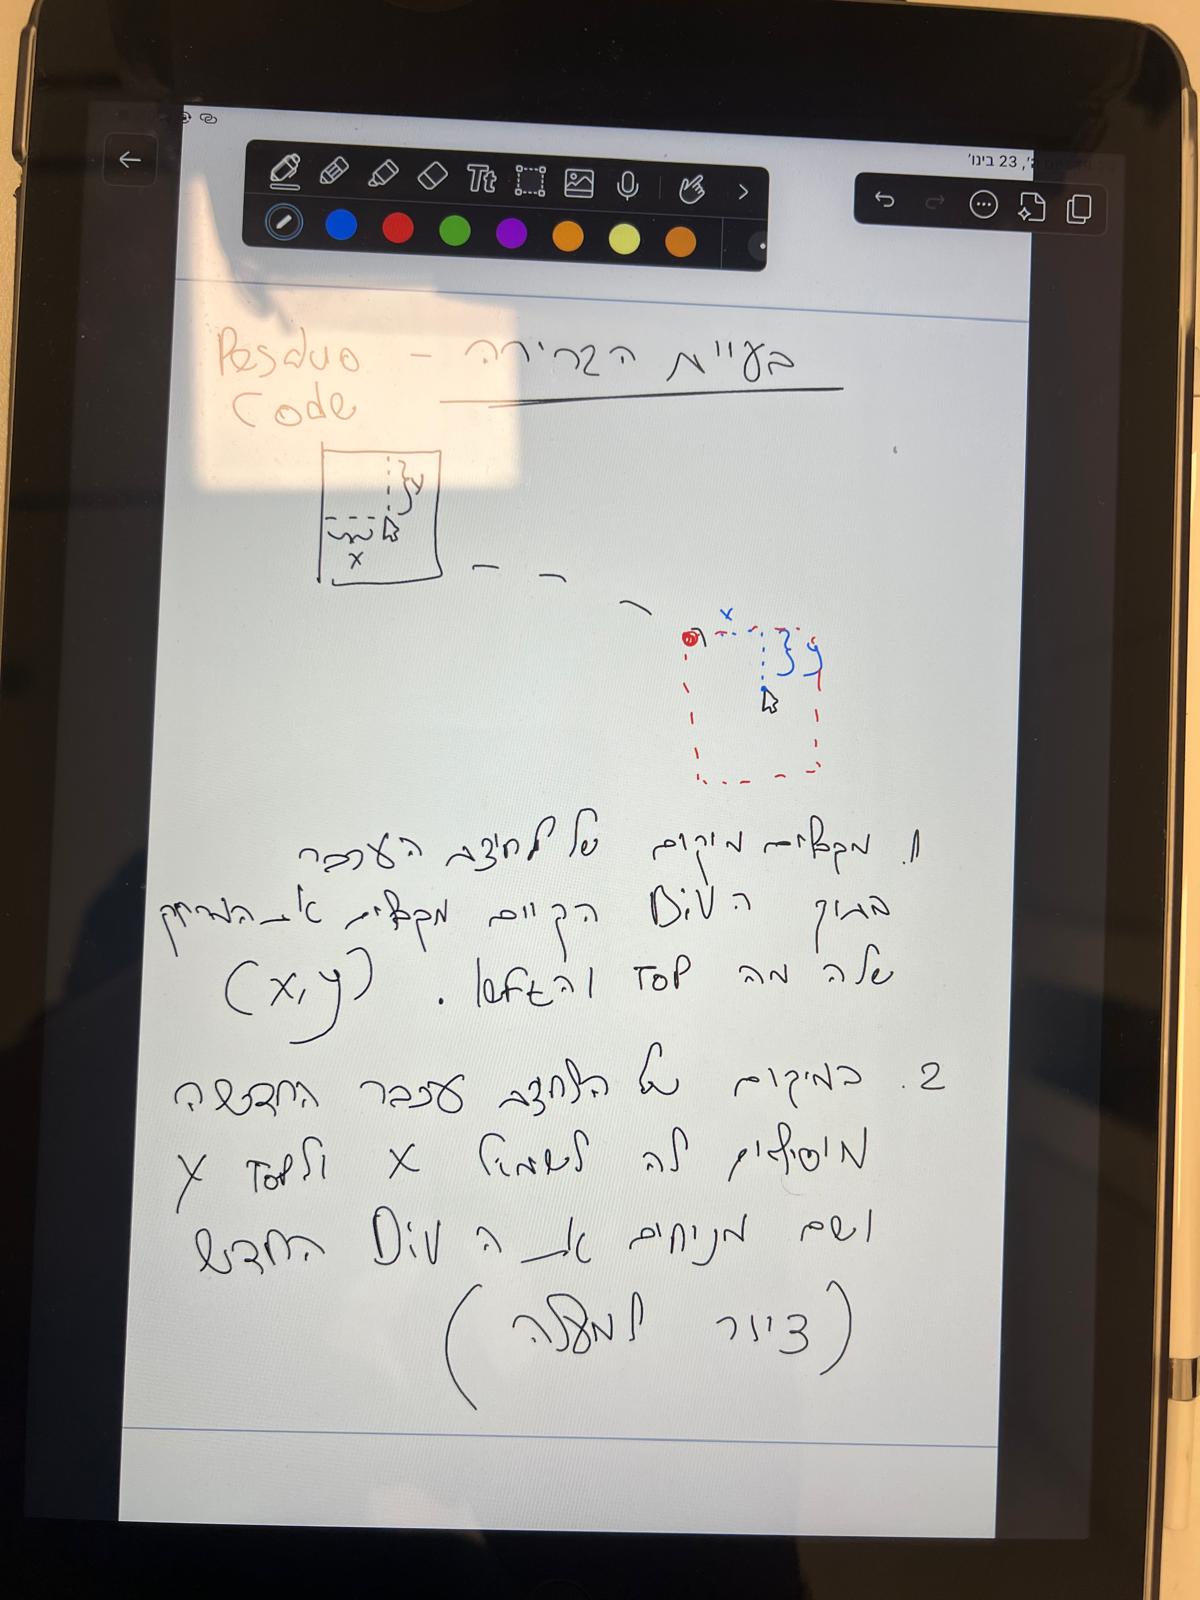 23 בינו׳
Tt
בעיית הגרירה - Pesduo
Code
y
x
x
y
1. מקבלים מיקום של לחיצת העכבר
בתוך ה Div הקיים מקבלים את המרחק
שלה מה Top והleft. (x,y)
2. במיקום של הלחצת עכבר החדשה
מוסיפים לה לשמאל x ולTop y
ושם מניחים את ה Div החדש
(ציור למעלה)